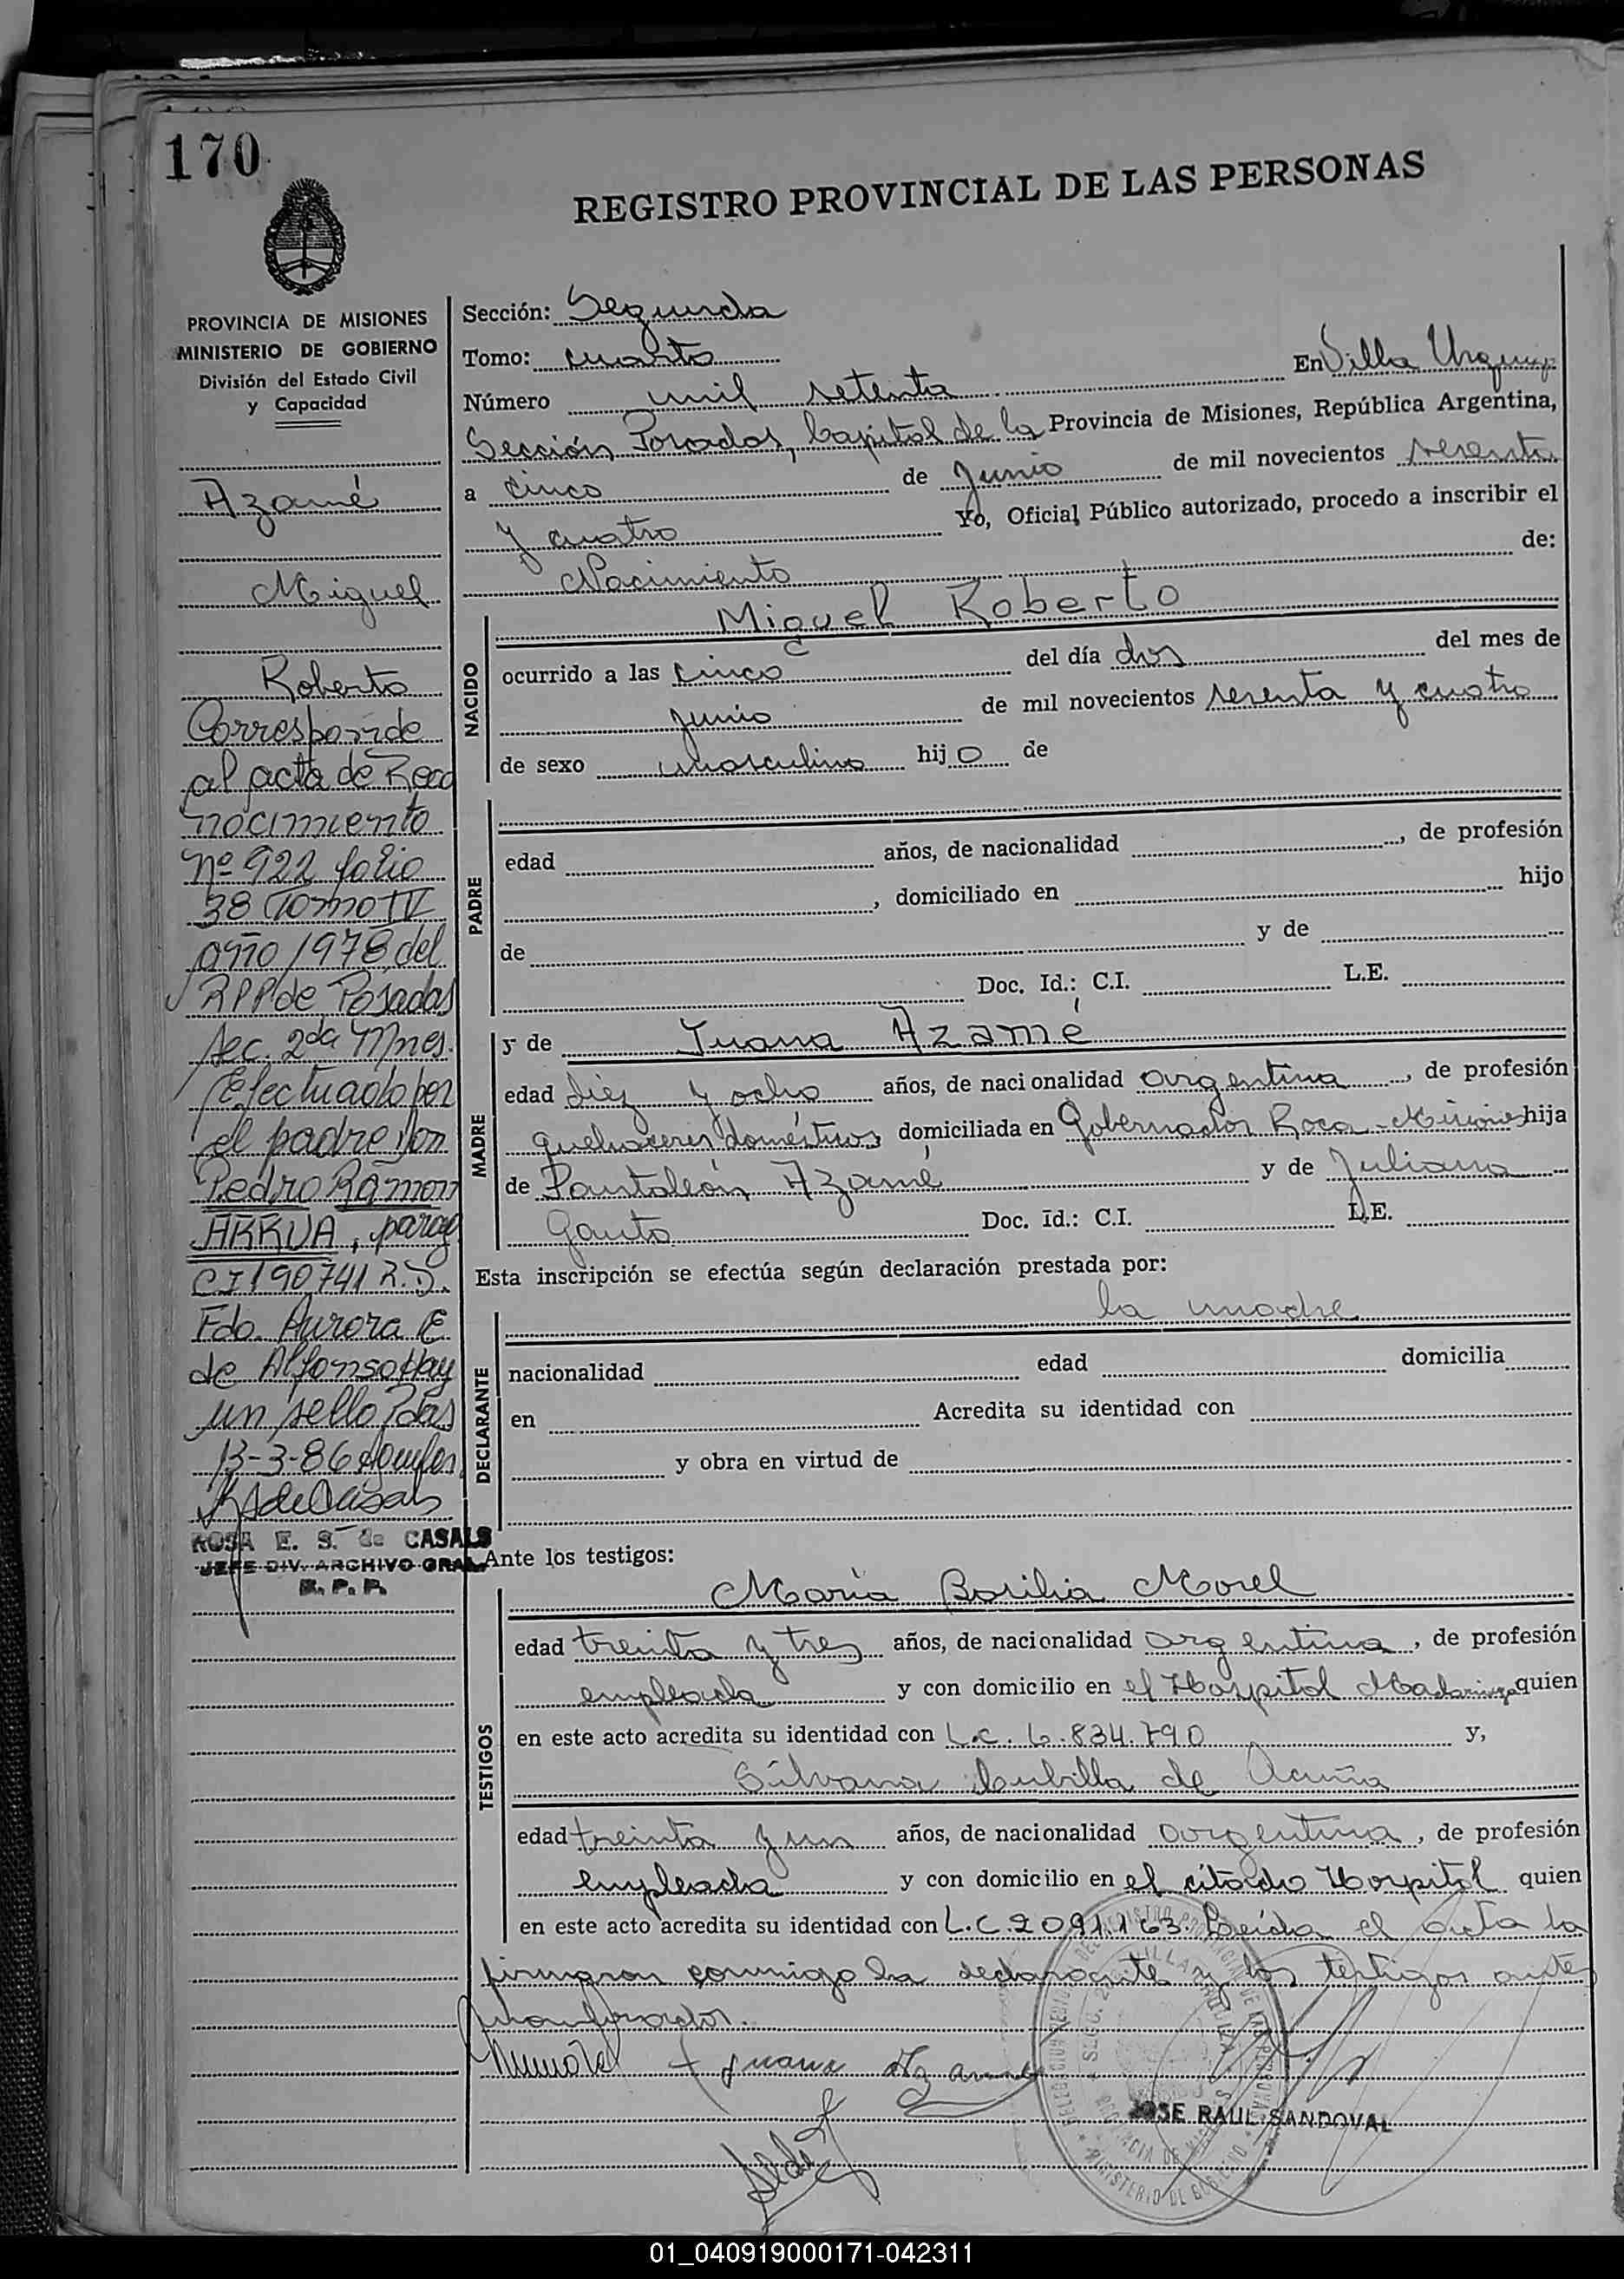 170
REGISTRO PROVINCIAL DE LAS PERSONAS
PROVINCIA DE MISIONES
MINISTERIO DE GOBIERNO
División del Estado Civil
y Capacidad
Azamé
Miguel
Roberto
Corresponde
al acta de Reco
nocimiento
Nº 922 folio
38 Tomo IV
año 1978 del
RPP de Posadas
Sec. 2da Mnes.
Efectuado por
el padre Don
Pedro Ramon
ARRUA, parag
CI 190741 R.S.
Fdo. Aurora E
de Alfonso Hay
un sello Pdas
13-3-86
ROSA E. S. de CASALS
JEFE DIV. ARCHIVO GRAL
R. P. P.
Sección: Segunda
Tomo: cuarto
Número mil setenta En Villa Urquiza
Sección Posadas, Capital de la Provincia de Misiones, República Argentina,
a cinco de Junio de mil novecientos sesenta
y cuatro Yo, Oficial Público autorizado, procedo a inscribir el
Nacimiento de:
NACIDO
Miguel Roberto
ocurrido a las cinco del día dos del mes de
junio de mil novecientos sesenta y cuatro
de sexo masculino hijo de
PADRE
edad años, de nacionalidad , de profesión
, domiciliado en hijo
de y de
Doc. Id.: C.I. L.E.
MADRE
y de Juana Azamé
edad diez y ocho años, de nacionalidad argentina , de profesión
quehaceres domésticos domiciliada en Gobernador Roca - Misiones hija
de Pantaleón Azamé y de Juliana
Gauto Doc. Id.: C.I. L.E.
Esta inscripción se efectúa según declaración prestada por:
la madre
DECLARANTE
nacionalidad edad domicilia
en Acredita su identidad con
y obra en virtud de
Ante los testigos:
TESTIGOS
María Basilia Morel
edad treinta y tres años, de nacionalidad argentina , de profesión
empleada y con domicilio en el Hospital Madariaga quien
en este acto acredita su identidad con L.C. 6.834.790 y,
Silvana Cubilla de Acuña
edad treinta y un años, de nacionalidad argentina , de profesión
empleada y con domicilio en el citado Hospital quien
en este acto acredita su identidad con L.C. 2091163. Leída el acta la
firmaron conmigo la declarante y los testigos ante
mencionados.
Juana Azame
JOSE RAUL SANDOVAL
01_040919000171-042311